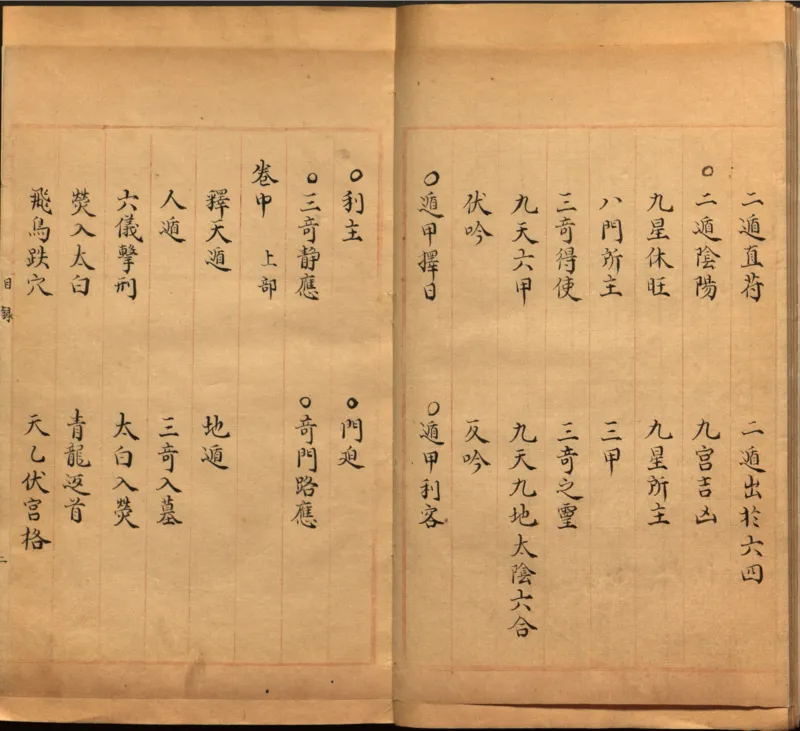 二遁直符 二遁出於六四
○二遁陰陽 九宮吉凶
九星休旺 九星所主
八門所主 三甲
三奇得使 三奇之靈
九天六甲 九天九地太陰六合
伏吟 反吟
○遁甲擇日 ○遁甲利客
○利主 ○門迫
○三奇静應 ○奇門路應
卷中 上部
釋天遁 地遁
人遁 三奇入墓
六儀擊刑 太白入熒
熒入太白 青龍返首
飛鳥跌穴 天乙伏宮格
目錄 二